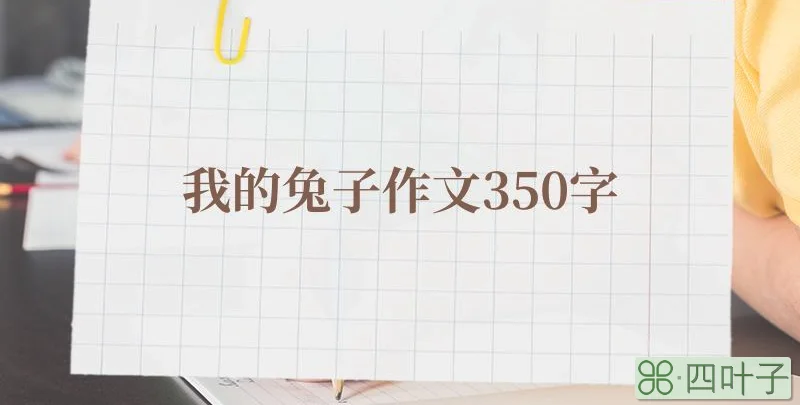 我的兔子作文350字
⌘·四叶子